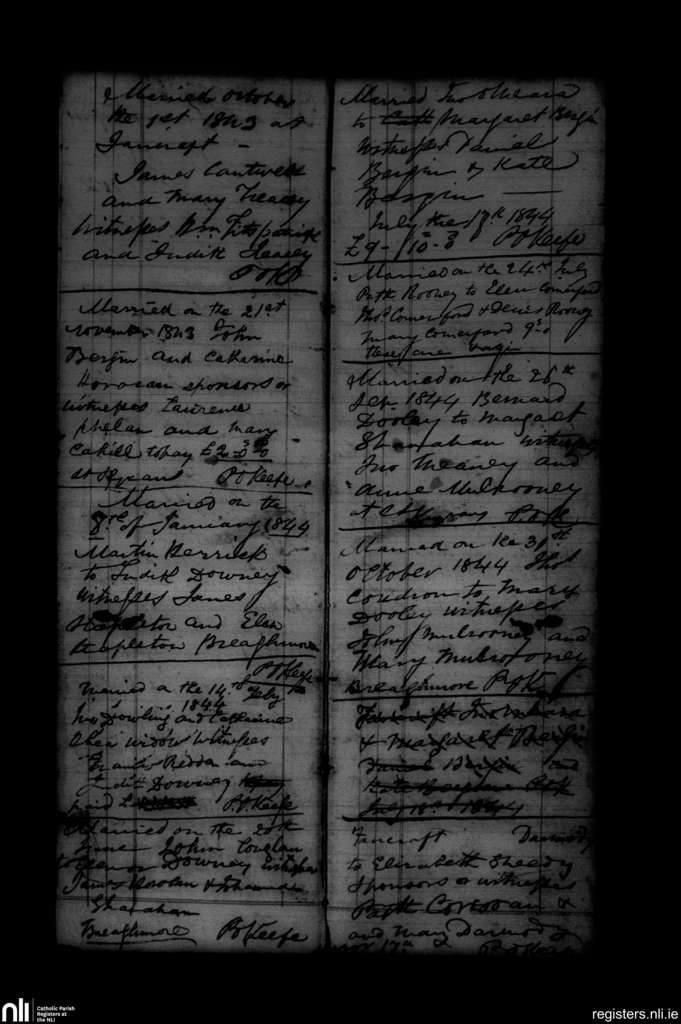 Married October
the 1st 1843 at
Fancroft -
James Cantwell
and Mary Treacy
Witnesses Wm Fitzpatrick
and Judith Treacy
P O K
Married on the 21st
november 1843 John
Bergin and Catharine
Horoean sponsors or
witnesses Laurence
Phelan and Mary
Cahill to pay £2-0-0
St Kyrans P O Keefe
Married on the
of January 1844
Martin Kerrick
to Judith Downey
witnesses James
Stapleton and Elen
Stapleton Breaghmore
P O Keefe
Married on the 14th of Feby
1844
Jno Dowling and Catharine
widow Witnesses
Redden and
Judith Downey
paid £ P O Keefe
Married on the 20th
June John Coughlan
to Downey Witnesses
James & Johannah
Shanahan
Breaghmore P O Keefe
Married Jno O Meara
to Margaret Bergin
Witnesses Daniel
Bergin & Kate
Bergin
July the 18th 1844
£9-10-3 P O Keefe
Married on the 24th July
Patk Rooney to Elen Comerford
Thos Comerford & Denis Rooney
Mary Comerford
these are vagi
Married on the 26th
Sep 1844 Bernard
Dooley to Margaret
Shanahan witnesses
Jno Meaney and
Anne Mulrooney
at St Kyrans P O K
Married on the 31st
October 1844 Thos
Coudron to Mary
Dooley witnesses
John Mulrooney and
Mary Mulrooney
Breaghmore P O K
Fancroft Jno O Meara
& Margaret Bergin
Daniel Bergin and
Kate Bergin P O K
July 18th 1844
Fancroft Darmody
to Elizabeth Sheedy
Sponsors or witnesses
Patk Corcoran &
and Mary Darmody
17th P O Keefe
nli
Catholic Parish
Registers at
the NLI
registers.nli.ie